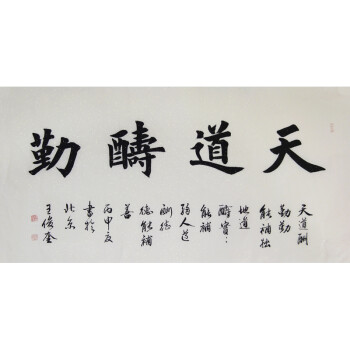 天道醻勤
天道酬
勤勤
能補拙
地道
醻實:
能補
弱人道
酬德
德能補
善
丙申夏
書於
北京
王俊奎